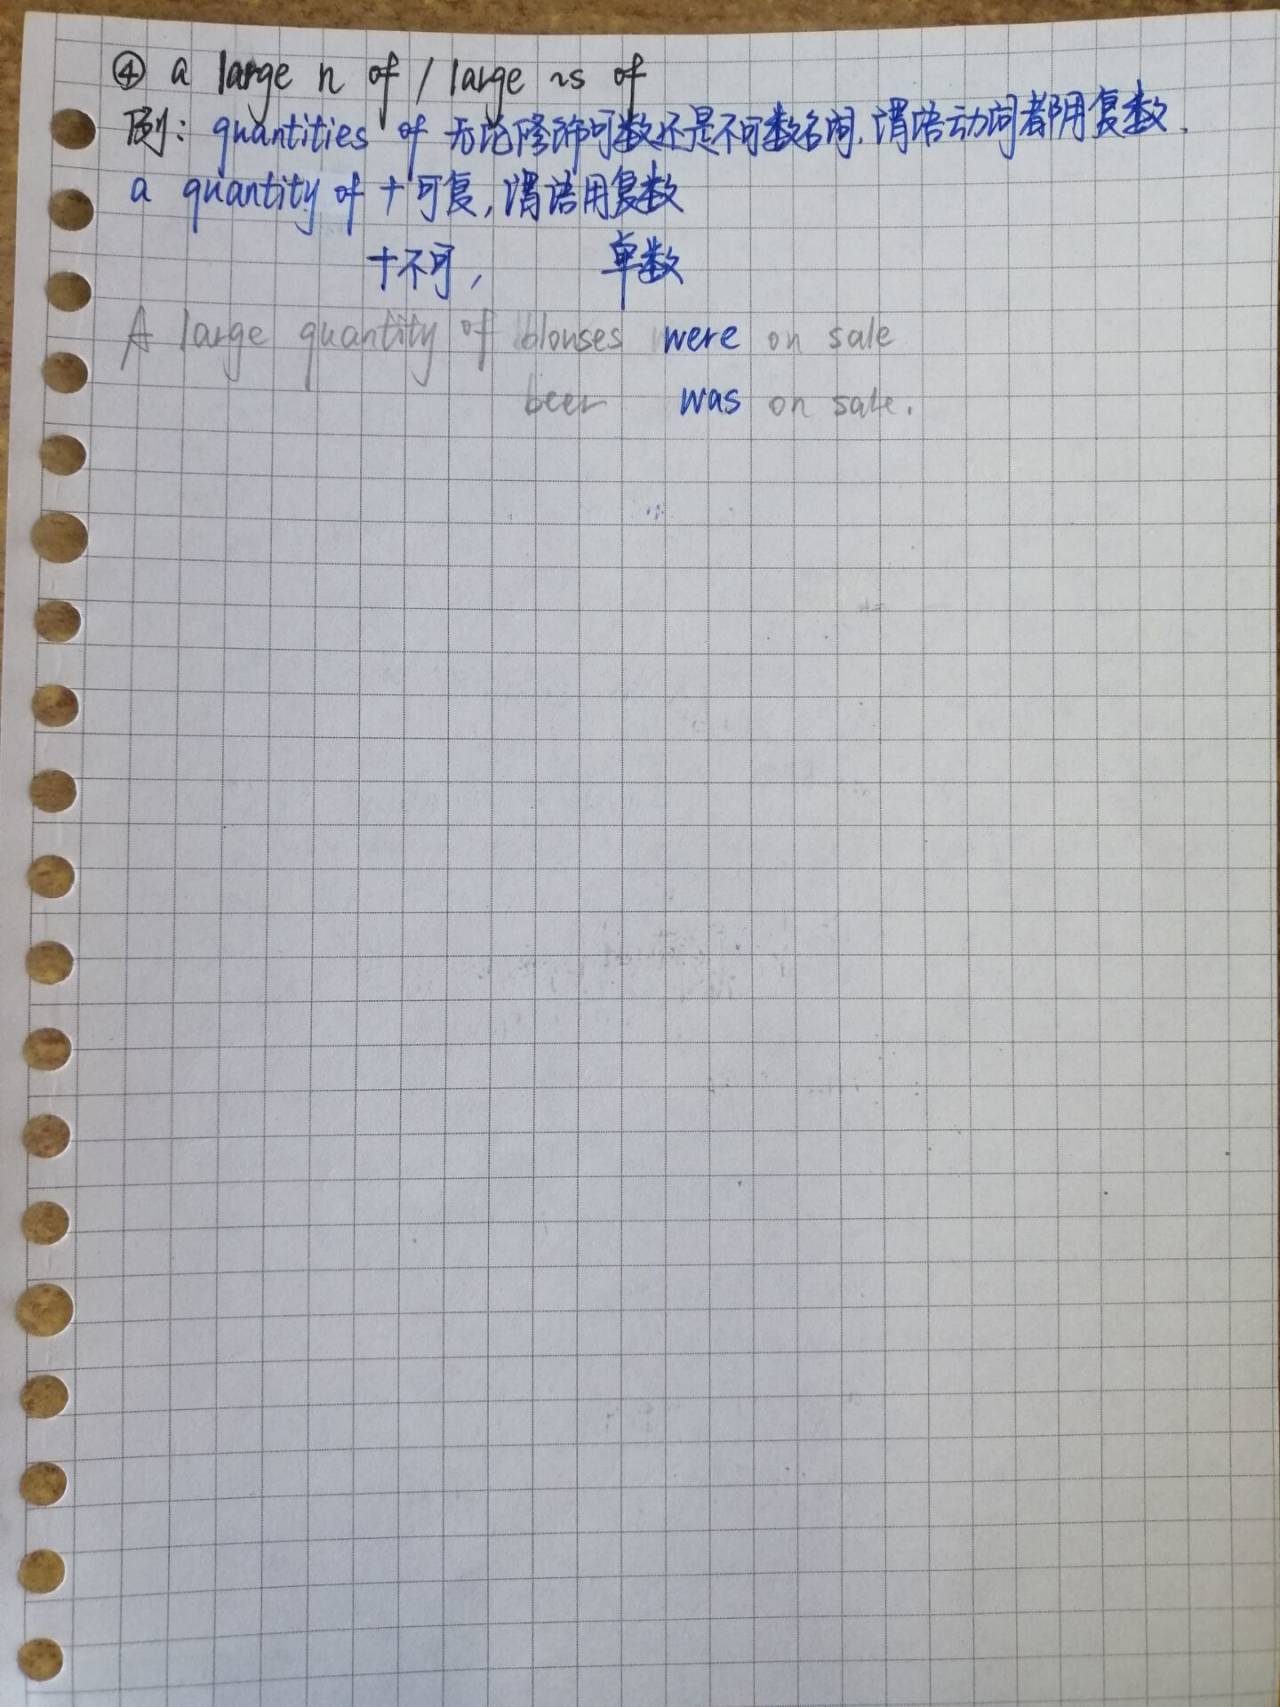 ④ a large n of / large ~s of
例: quantities of 无论修饰可数还是不可数名词,谓语动词都用复数.
a quantity of +可复,谓语用复数
+不可, 单数
A large quantity of blouses were on sale
beer was on sale.